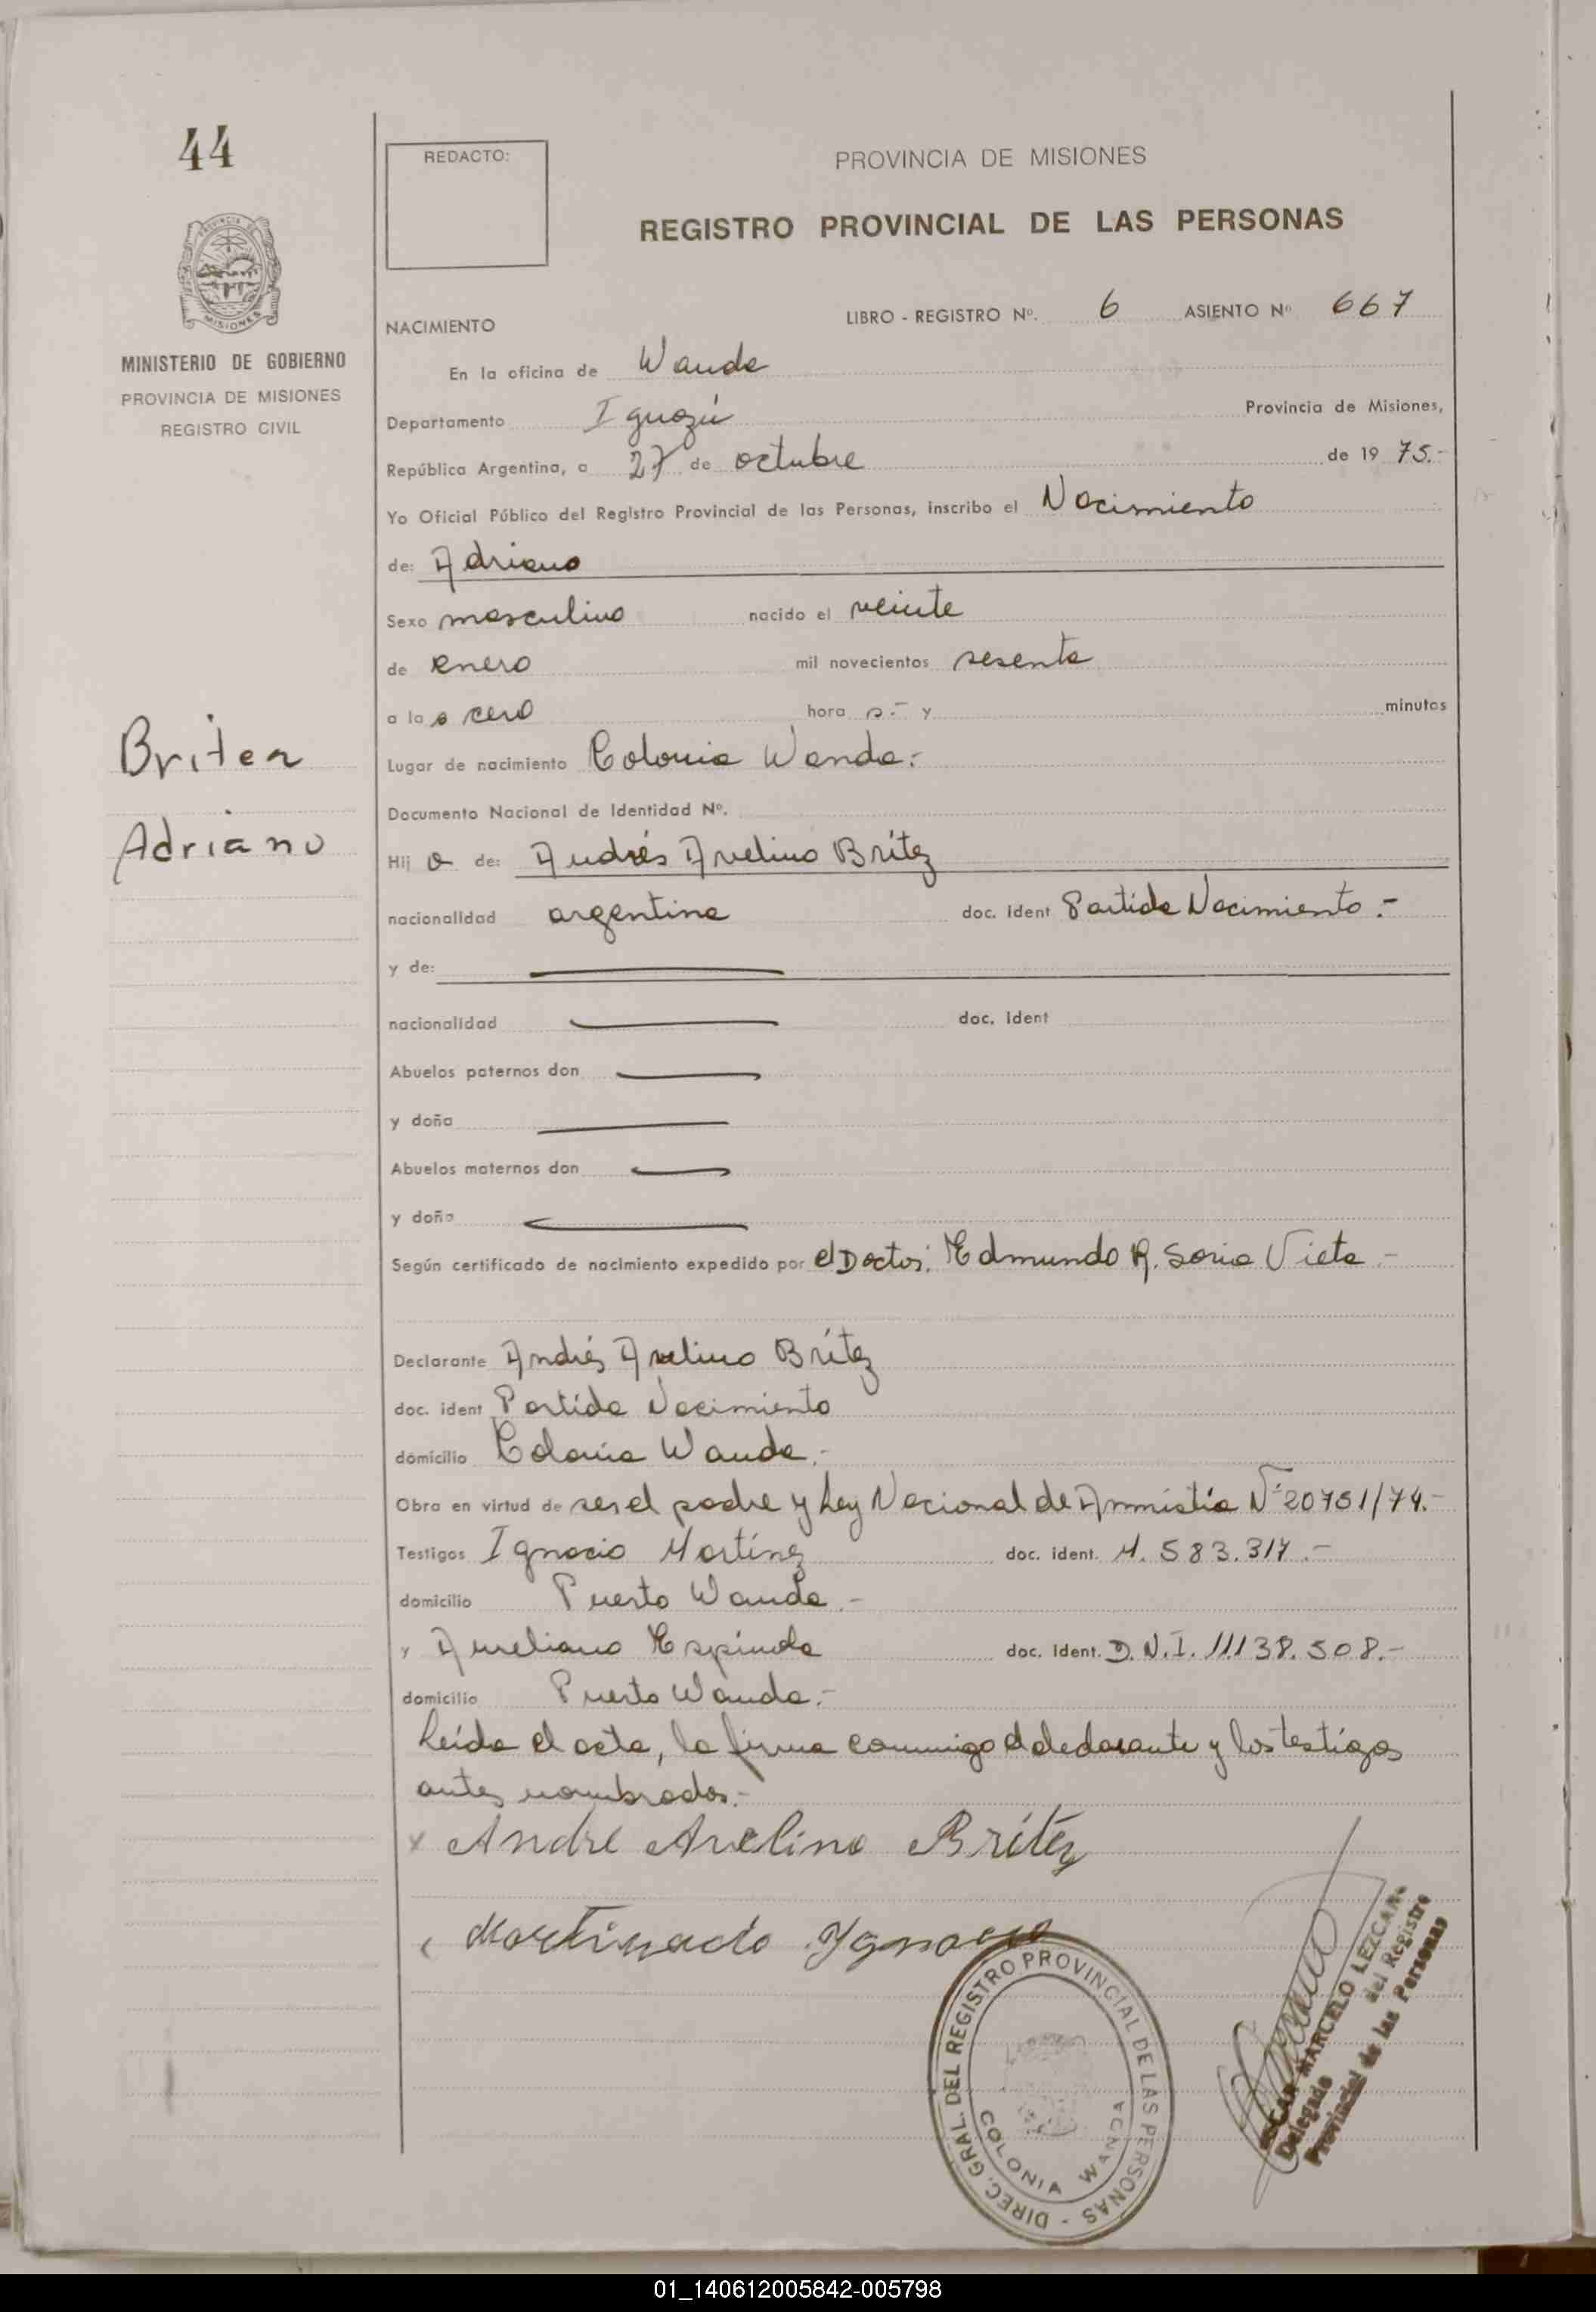 44
REDACTO:
PROVINCIA DE MISIONES
REGISTRO PROVINCIAL DE LAS PERSONAS
PROVINCIA
MISIONES
MINISTERIO DE GOBIERNO
PROVINCIA DE MISIONES
REGISTRO CIVIL
NACIMIENTO
LIBRO - REGISTRO Nº. 6 ASIENTO Nº 667
En la oficina de Wanda
Departamento Iguazú Provincia de Misiones,
República Argentina, a 27 de octubre de 19 75.-
Yo Oficial Público del Registro Provincial de las Personas, inscribo el Nacimiento
de: Adriano
Sexo masculino nacido el veinte
de enero mil novecientos sesenta
a la s cero hora s.- y minutos
Britez
Adriano
Lugar de nacimiento Colonia Wanda.-
Documento Nacional de Identidad Nº.
Hij o de: Andrés Avelino Brítez
nacionalidad argentina doc. ident Partida Nacimiento.-
y de:
nacionalidad doc. ident
Abuelos paternos don
y doña
Abuelos maternos don
y doña
Según certificado de nacimiento expedido por el Doctor: Edmundo R. Soria Vieta -
Declarante Andrés Avelino Brítez
doc. ident Partida Nacimiento
domicilio Colonia Wanda.-
Obra en virtud de ser el padre y Ley Nacional de Amnistía Nº 20751/74.-
Testigos Ignacio Martínez doc. ident. M. 583.317.-
domicilio Puerto Wanda.-
y Aureliano Espíndola doc. ident. D.N.I. 11.138.508.-
domicilio Puerto Wanda.-
Leída el acta, la firma conmigo el declarante y los testigos
antes nombrados.-
x Andre Avelino Brítez
Ygnacio
DIREC. GRAL. DEL REGISTRO PROVINCIAL DE LAS PERSONAS -
COLONIA WANDA
OSCAR MARCELO LEZCANO
Delegado del Registro
Provincial de las Personas
01_140612005842-005798